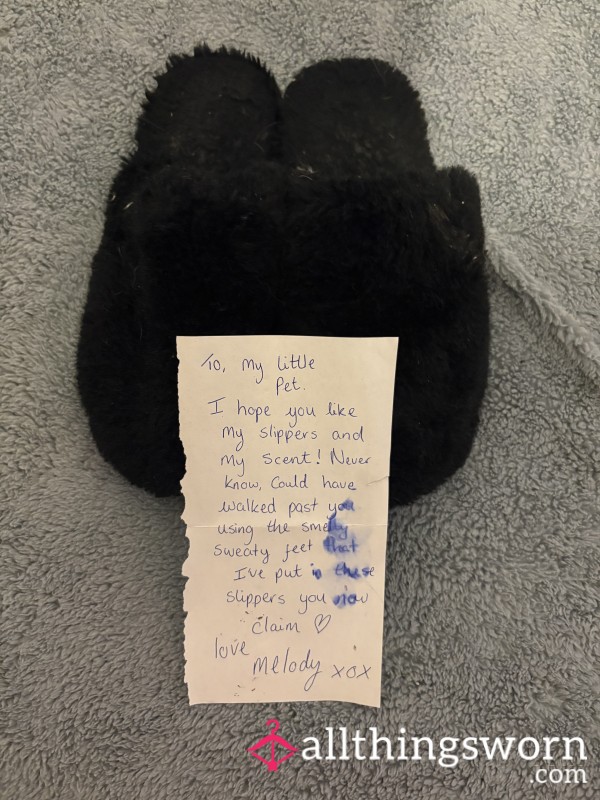 To, My little
Pet.
I hope you like
My slippers and
My scent! Never
know, Could have
walked past you
using the smelly
sweaty feet that
I've put in these
slippers you now
claim ♡
love
Melody xox
allthingsworn
.com